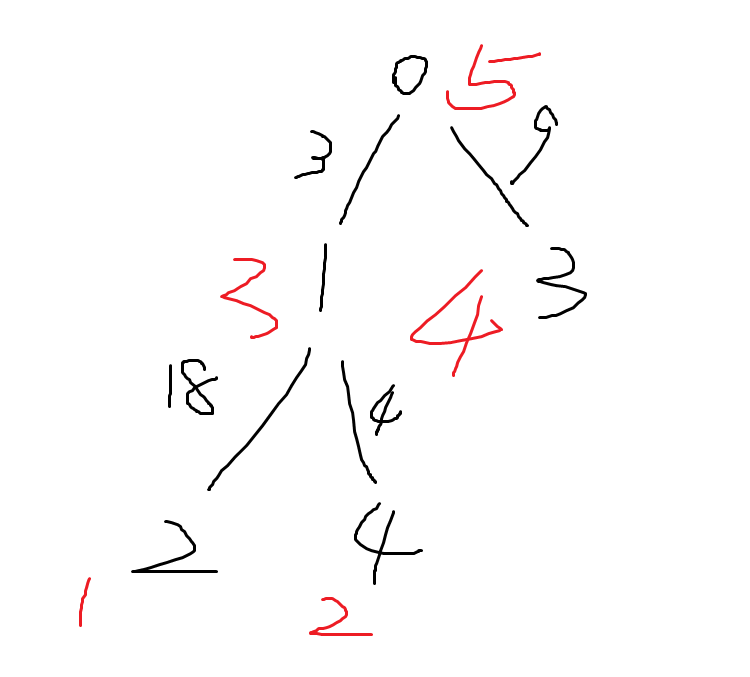 0 5
3 9
3 1 4 3
18 4
2 4
1 2